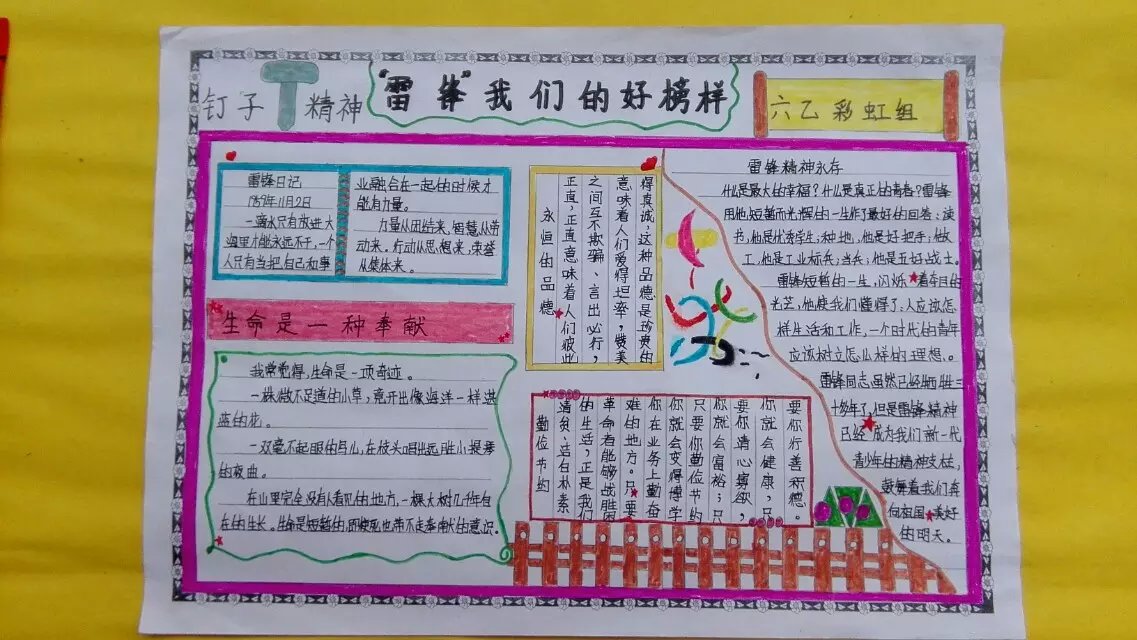 钉子 精神
"雷锋"我们的好榜样
六乙彩虹组
雷锋日记
1959年11月2日
一滴水只有放进大
海里才能永远不干,一个
人只有当把自己和事
业融合在一起的时候才
能有力量。
力量从团结来,智慧从劳
动来。行动从思想来,荣誉
从集体来。
生命是一种奉献
我常觉得,生命是一项奇迹。
一株微不足道的小草,竟开出像海洋一样湛
蓝的花。
一双毫不起眼的鸟儿,在枝头唱出远胜小提琴
的夜曲。
在山里完全没有人看见的地方,一棵大树几千年自
在的生长。生命是短暂的,即使死也带不走奉献的意识。
得真诚,这种品德是珍贵的
意味着人们爱得坦率,赞美
之间互不欺骗、言出必行;
正直,正直意味着人们彼此
永恒的品德
要你行善积德。
你就会健康,只
要你清心寡欲,
你就会富裕;只
只要你勤俭节约
你就会变得博学
你在业务上勤奋
难的地方。只要
革命者能够战胜困
的生活,正是我们
清贫、洁白朴素
勤俭节约
雷锋精神永存
什么是最大的幸福?什么是真正的青春?雷锋
用他短暂而光辉的一生作了最好的回答:读
书,他是优秀学生;种地,他是好把手;做
工,他是工业标兵;当兵,他是五好战士。
雷锋短暂的一生,闪烁着夺目的
光芒,他使我们懂得了,人应该怎
样生活和工作,一个时代的青年
应该树立怎么样的理想.。
雷锋同志虽然已经牺牲三
十多年了,但是雷锋精神
已经成为我们新一代
青少年的精神支柱,
鼓舞着我们奔
向祖国美好
的明天。